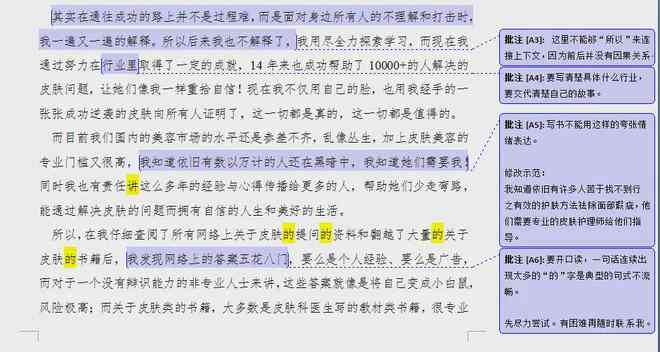 其实在通往成功的路上并不是过程难，而是面对身边所有人的不理解和打击时，
我一遍又一遍的解释。所以后来我也不解释了，我用尽全力探索学习，而现在我
通过努力在行业里取得了一定的成就，14 年来也成功帮助了 10000+的人解决的
皮肤问题，让她们像我一样重拾自信！现在我不仅用自己的脸，也用我经手的一
张张成功逆袭的皮肤向所有人证明了，这一切都是真的，这一切都是值得的。
而目前我们国内的美容市场的水平还是参差不齐，乱像丛生，加上皮肤美容的
专业门槛又很高，我知道依旧有数以万计的人还在黑暗中，我知道她们需要我！
同时我也有责任讲这么多年的经验与心得传播给更多的人，帮助她们少走弯路，
能通过解决皮肤的问题而拥有自信的人生和美好的生活。
所以，在我仔细查阅了所有网络上关于皮肤的提问的资料和翻越了大量的关于
皮肤的书籍后，我发现网络上的答案五花八门，要么是个人经验、要么是广告，
而对于一个没有辩识能力的非专业人士来讲，这些答案就像是将自己变成小白鼠，
风险极高；而关于皮肤类的书籍，大多数是皮肤科医生写的教材类书籍，很专业
批注 [A3]: 这里不能够“所以”来连
接上下文，因为前后并没有因果关系
批注 [A4]: 要写清楚具体什么行业，
要交代清楚自己的故事。
批注 [A5]: 写书不能用这样的夸张情
绪表达。
修改示范：
我知道依旧有许多人苦于找不到行
之有效的护肤方法祛除面部瑕疵，他
们需要专业的皮肤护理师给他们指
导。
批注 [A6]: 要开口读，一句话连续出
现大多的“的”字是典型的句式不流
畅。
先尽力尝试。有困难再随时联系我。